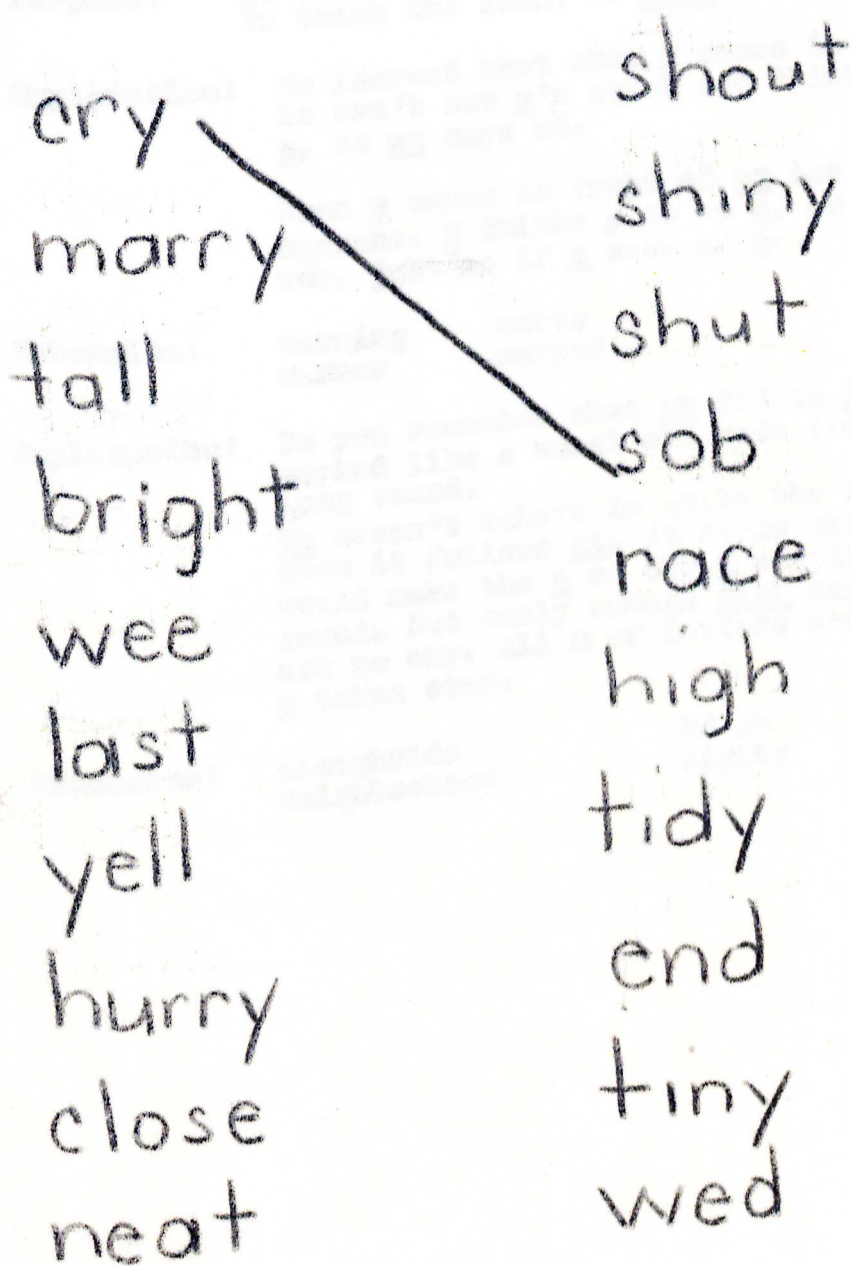 cry
marry
tall
bright
wee
last
yell
hurry
close
neat
shout
shiny
shut
sob
race
high
tidy
end
tiny
wed